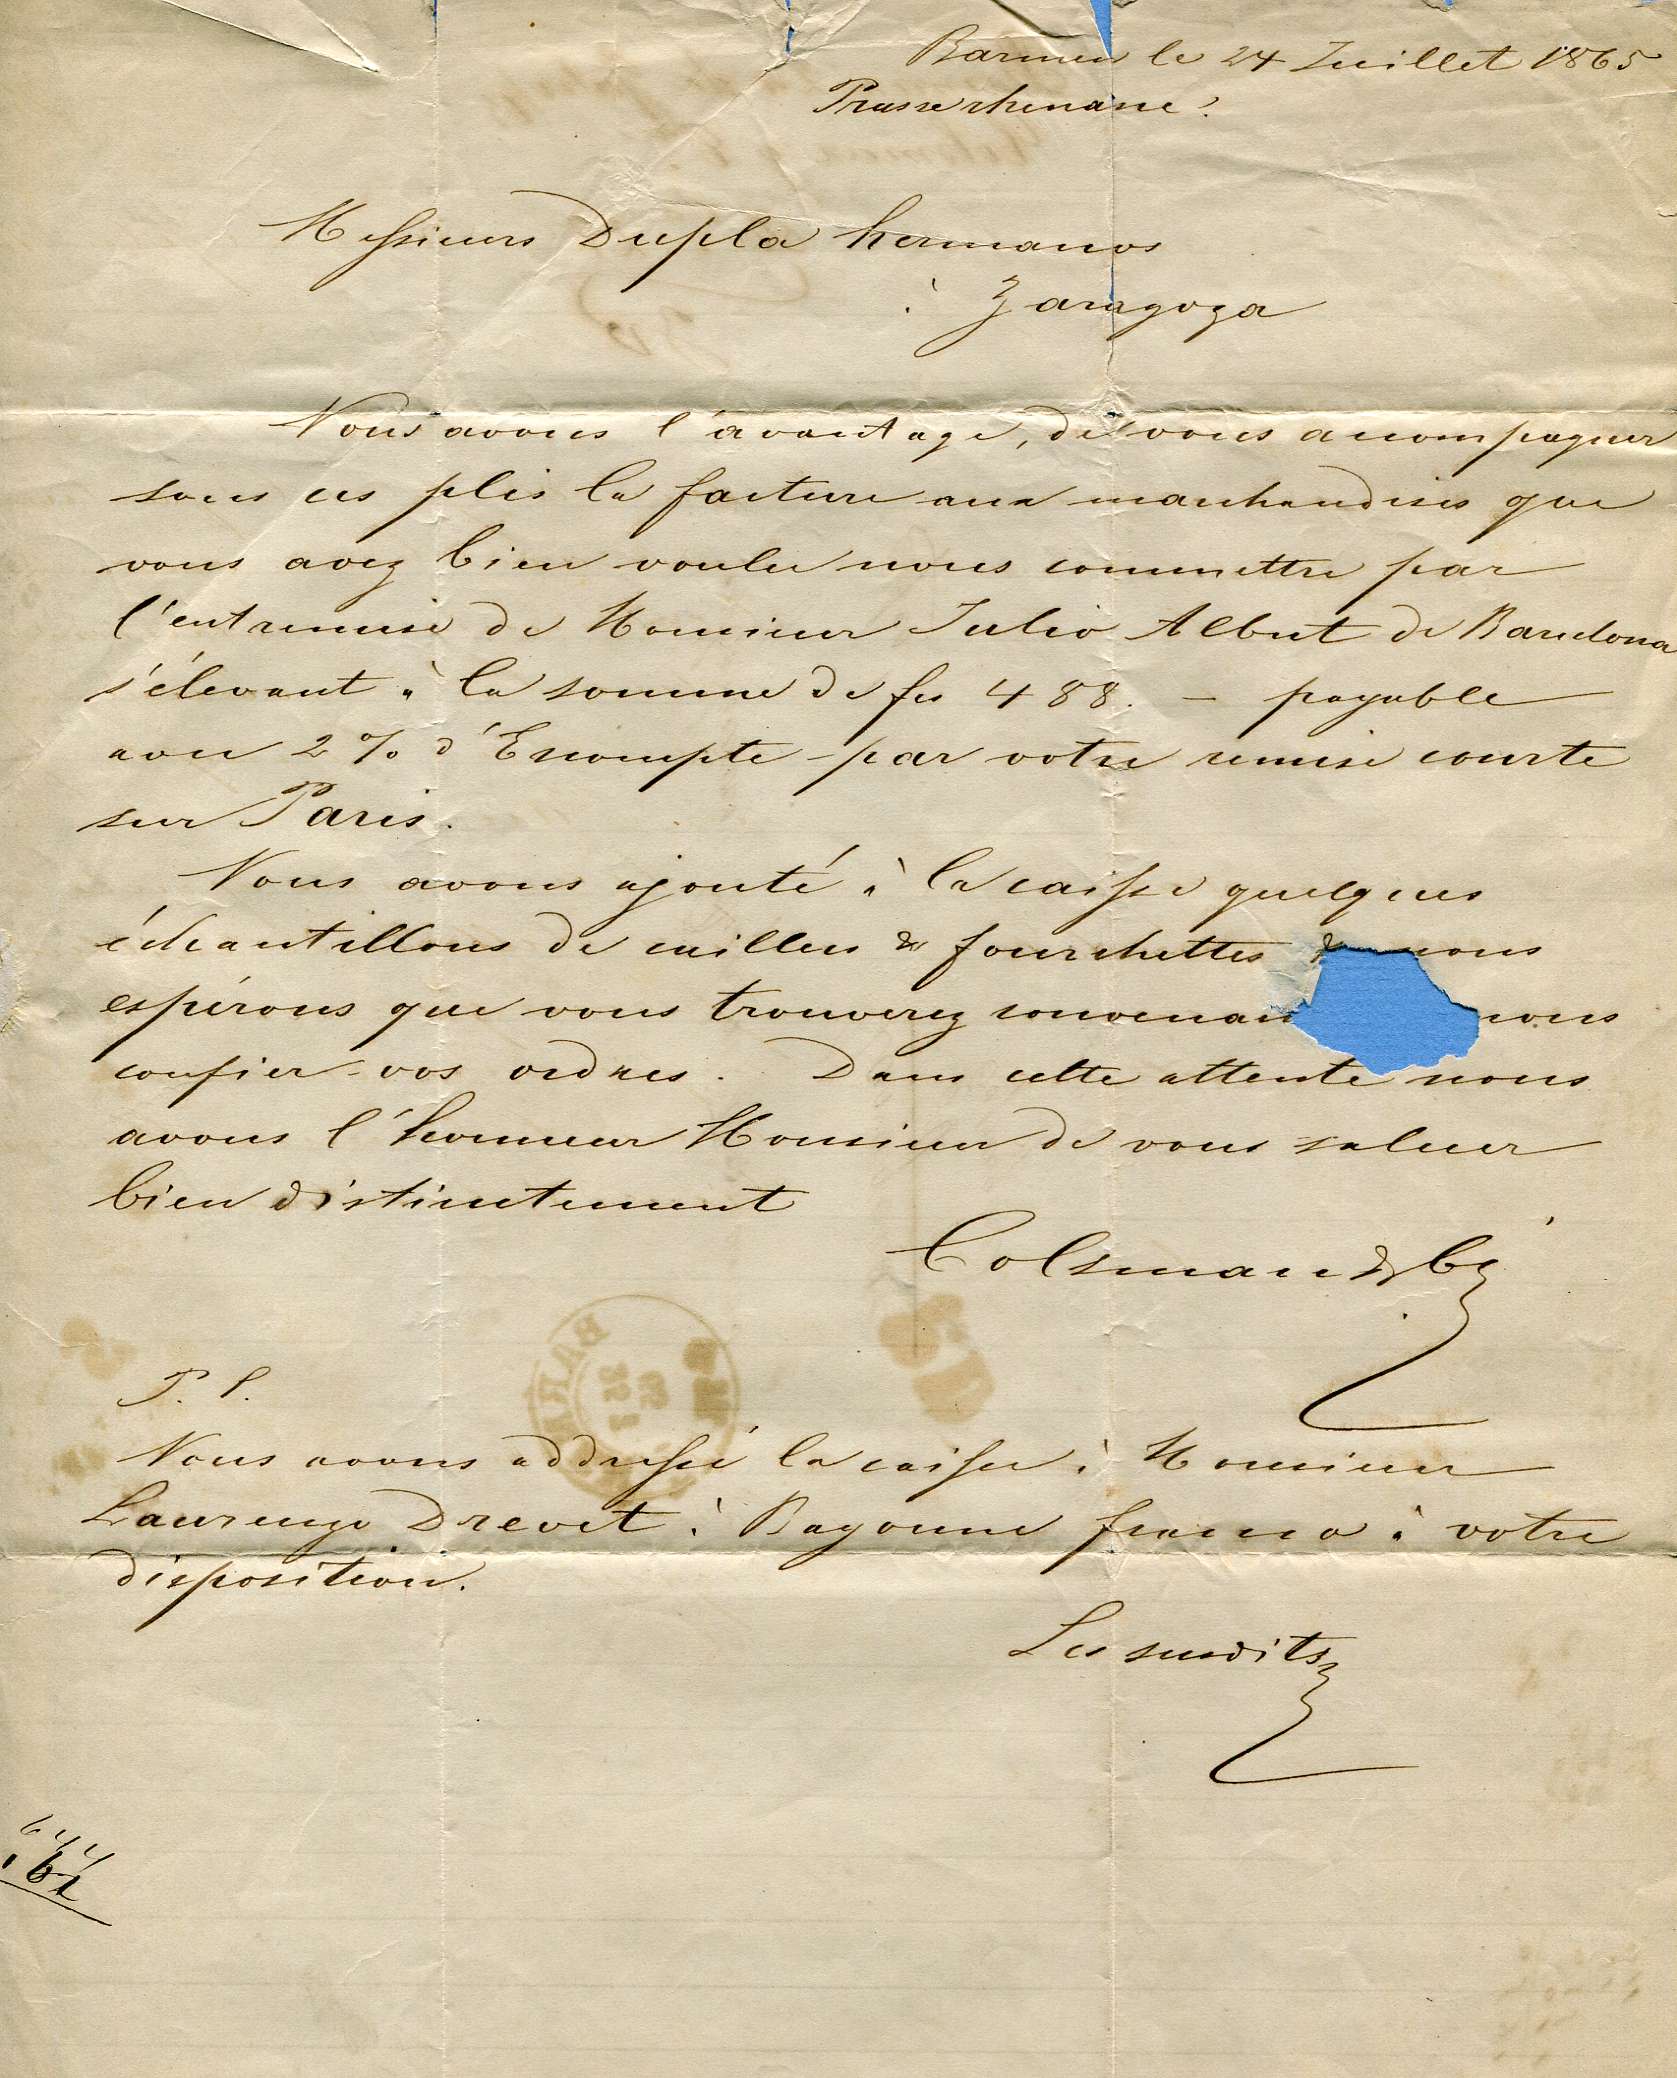 Barmen le 24 Juillet 1865
Prusse rhenane.
Messieurs Dupla hermanos
à Zaragoza
Nous avons l'avantage, de vous accompagner
sous ces plis la facture aux marchandises que
vous avez bien voulu nous commettre par
l'entremise de Monsieur Julio Albut de Barcelona
s'élevant à la somme de fcs 488. – payable
avec 2 % d'Escompte par votre remise courte
sur Paris.
Nous avons ajouté à la caisse quelques
échantillons de cuillers & fourchettes & nous
espérons que vous trouverez convenan nous
confier vos ordres. Dans cette attente nous
avons l'honneur Monsieur de vous saluer
bien distinctement
Colsman & Cie
P. S.
Nous avons addressé la caisse à Monsieur
Laurenzo Drevet à Bayonne franco à votre
disposition.
Les susdits